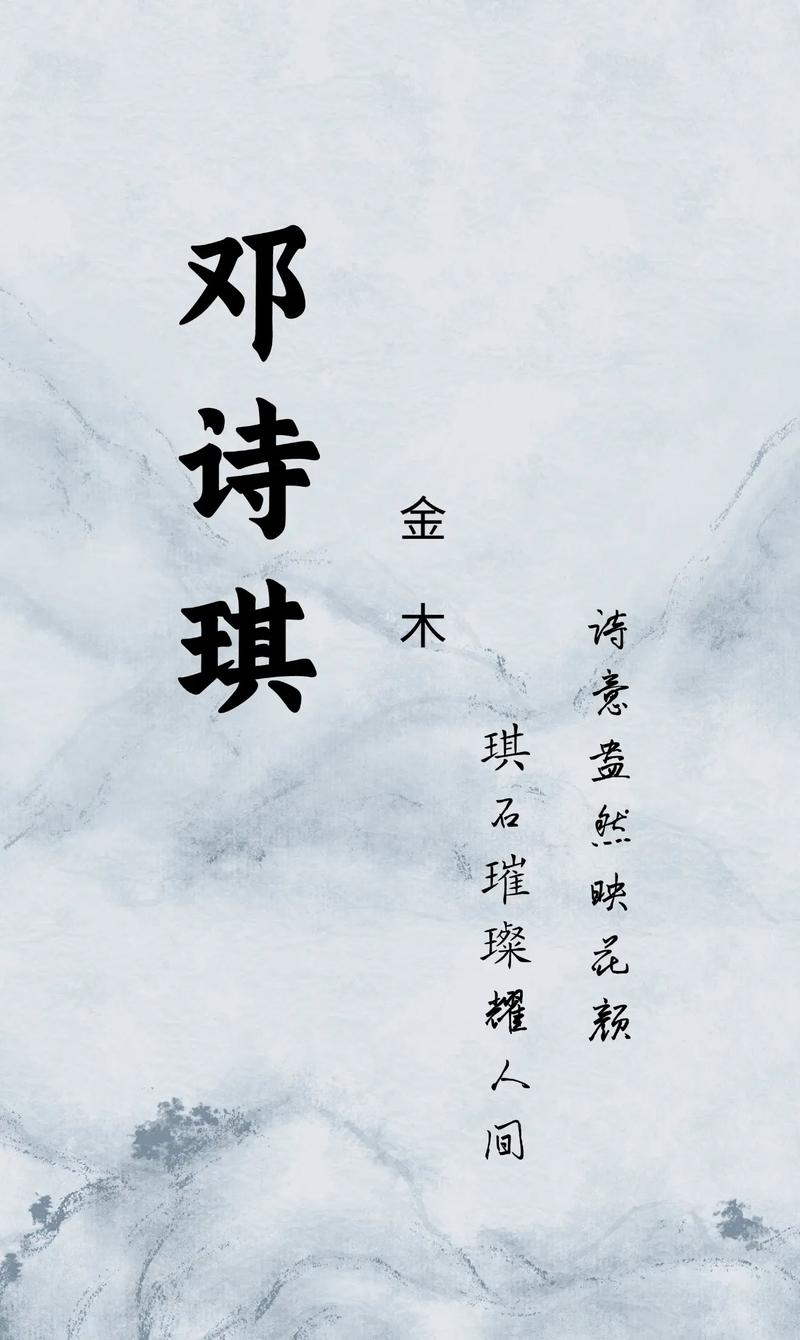 邓诗琪
金木
诗意盎然映花颜
琪石璀璨耀人间